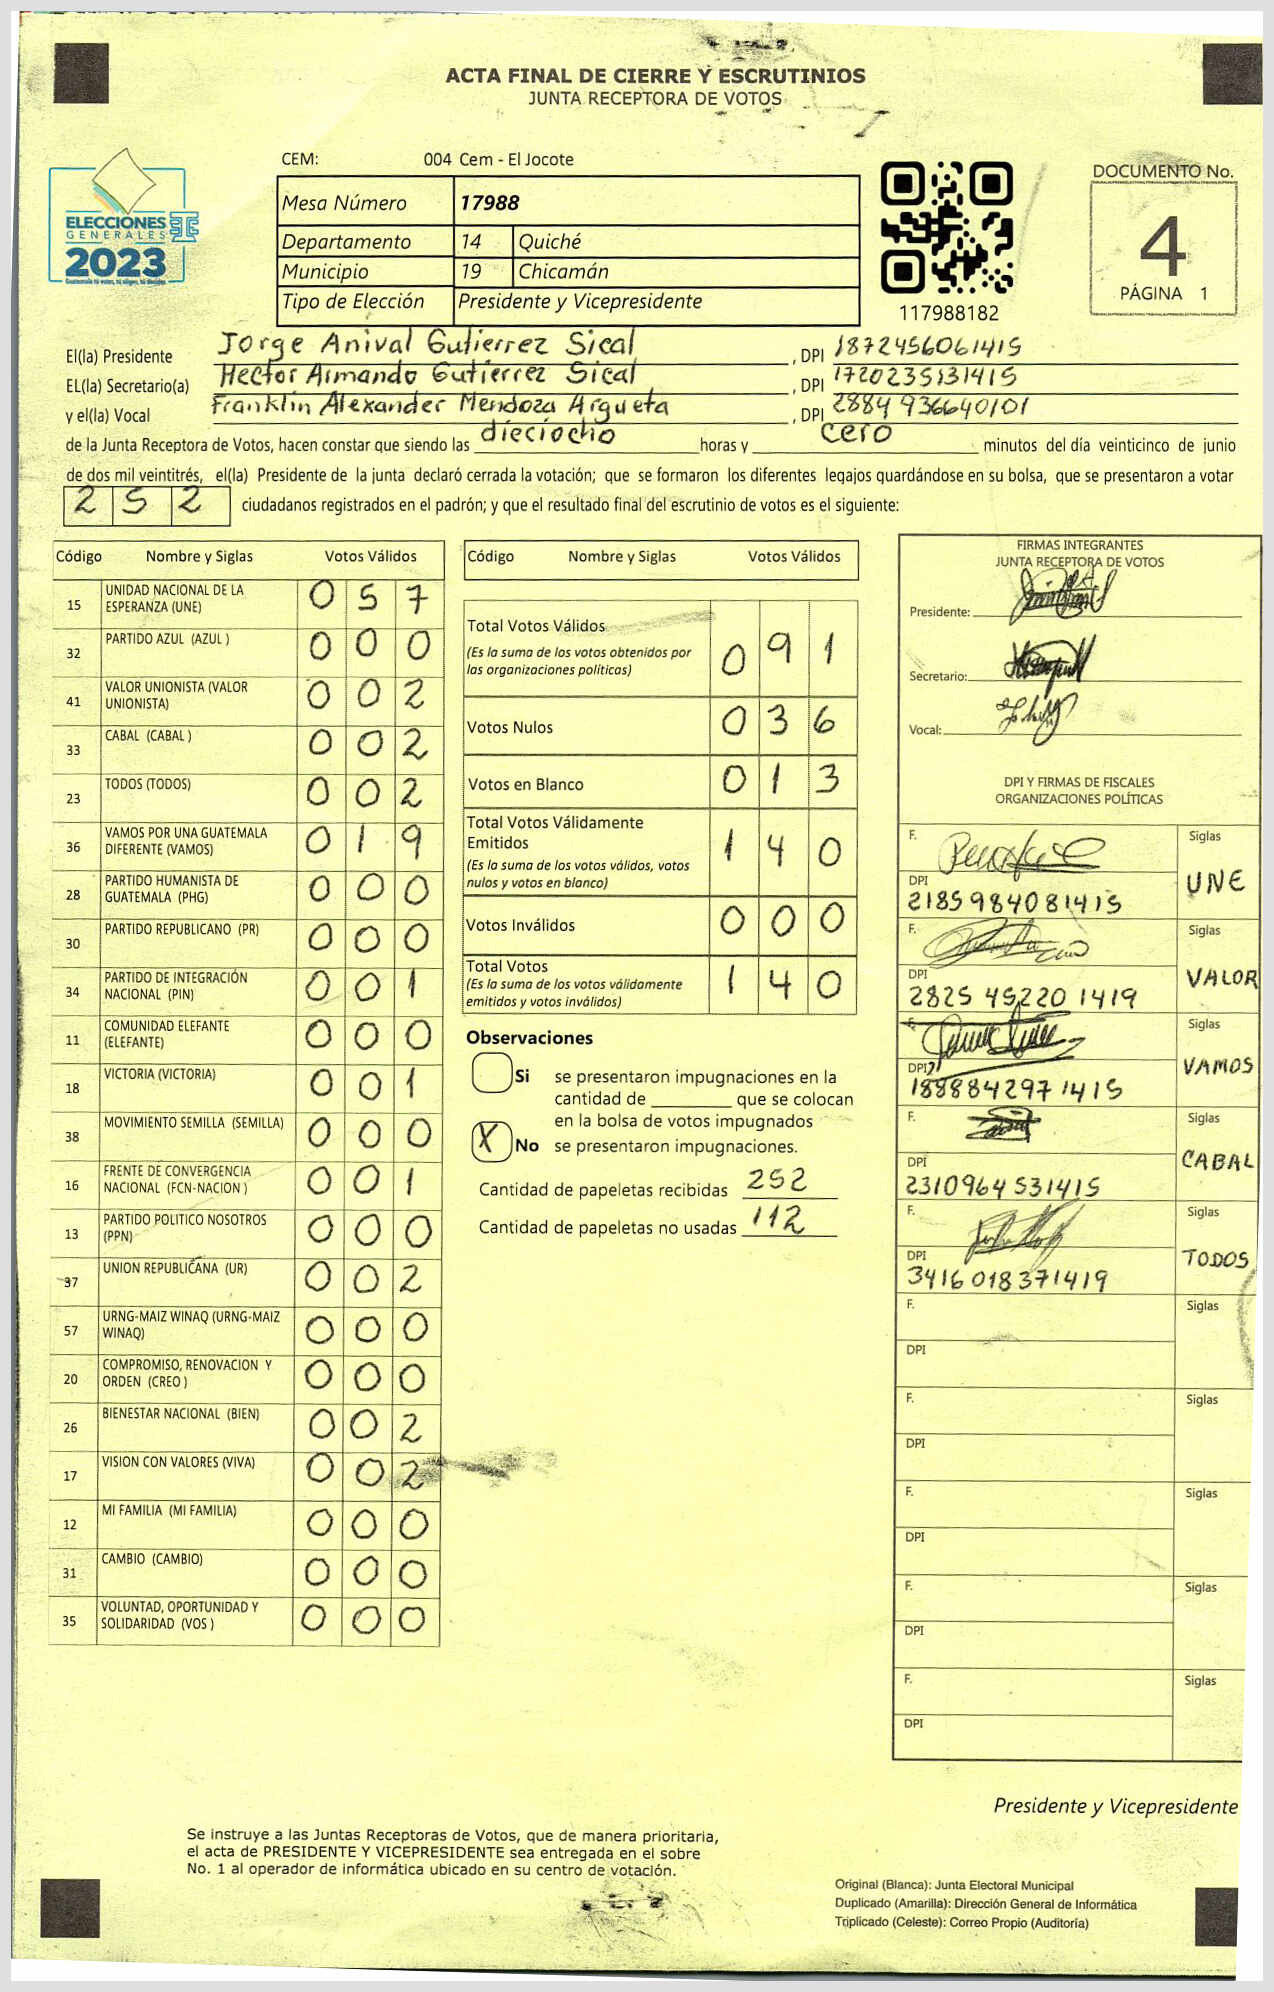 ACTA FINAL DE CIERRE Y ESCRUTINIOS
JUNTA RECEPTORA DE VOTOS
CEM: 004 Cem - El Jocote
DOCUMENTO No.
4
PÁGINA 1
ELECCIONES
GENERALES
2023
Guatemala tú votas, tú eliges, tú decides
Mesa Número 17988
Departamento 14 Quiché
Municipio 19 Chicamán
Tipo de Elección Presidente y Vicepresidente
117988182
El(la) Presidente Jorge Anival Gutierrez Sical, DPI 1872456061415
EL(la) Secretario(a) Hector Armando Gutierrez Sical, DPI 1720235131415
y el(la) Vocal Franklin Alexander Mendoza Argueta, DPI 2884 936640101
de la Junta Receptora de Votos, hacen constar que siendo las dieciocho horas y cero minutos del día veinticinco de junio
de dos mil veintitrés, el(la) Presidente de la junta declaró cerrada la votación; que se formaron los diferentes legajos quardándose en su bolsa, que se presentaron a votar
252 ciudadanos registrados en el padrón; y que el resultado final del escrutinio de votos es el siguiente:
Código Nombre y Siglas Votos Válidos
15 UNIDAD NACIONAL DE LA ESPERANZA (UNE) 0 5 7
32 PARTIDO AZUL (AZUL ) 0 0 0
41 VALOR UNIONISTA (VALOR UNIONISTA) 0 0 2
33 CABAL (CABAL ) 0 0 2
23 TODOS (TODOS) 0 0 2
36 VAMOS POR UNA GUATEMALA DIFERENTE (VAMOS) 0 1 9
28 PARTIDO HUMANISTA DE GUATEMALA (PHG) 0 0 0
30 PARTIDO REPUBLICANO (PR) 0 0 0
34 PARTIDO DE INTEGRACIÓN NACIONAL (PIN) 0 0 1
11 COMUNIDAD ELEFANTE (ELEFANTE) 0 0 0
18 VICTORIA (VICTORIA) 0 0 1
38 MOVIMIENTO SEMILLA (SEMILLA) 0 0 0
16 FRENTE DE CONVERGENCIA NACIONAL (FCN-NACION ) 0 0 1
13 PARTIDO POLITICO NOSOTROS (PPN) 0 0 0
37 UNION REPUBLICANA (UR) 0 0 2
57 URNG-MAIZ WINAQ (URNG-MAIZ WINAQ) 0 0 0
20 COMPROMISO, RENOVACION Y ORDEN (CREO ) 0 0 0
26 BIENESTAR NACIONAL (BIEN) 0 0 2
17 VISION CON VALORES (VIVA) 0 0 2
12 MI FAMILIA (MI FAMILIA) 0 0 0
31 CAMBIO (CAMBIO) 0 0 0
35 VOLUNTAD, OPORTUNIDAD Y SOLIDARIDAD (VOS ) 0 0 0
Código Nombre y Siglas Votos Válidos
Total Votos Válidos 0 9 1
(Es la suma de los votos obtenidos por
las organizaciones políticas)
Votos Nulos 0 3 6
Votos en Blanco 0 1 3
Total Votos Válidamente
Emitidos 1 4 0
(Es la suma de los votos válidos, votos
nulos y votos en blanco)
Votos Inválidos 0 0 0
Total Votos 1 4 0
(Es la suma de los votos válidamente
emitidos y votos inválidos)
Observaciones
Si se presentaron impugnaciones en la
cantidad de ________ que se colocan
en la bolsa de votos impugnados
X No se presentaron impugnaciones.
Cantidad de papeletas recibidas 252
Cantidad de papeletas no usadas 112
FIRMAS INTEGRANTES
JUNTA RECEPTORA DE VOTOS
Presidente:
Secretario:
Vocal:
DPI Y FIRMAS DE FISCALES
ORGANIZACIONES POLÍTICAS
F. Siglas
DPI UNE
2185984081415
F. Siglas
DPI VALOR
2825 45220 1419
F. Siglas
DPI VAMOS
1888842971415
F. Siglas
DPI CABAL
2310964531415
F. Siglas
DPI TODOS
3416018371419
F. Siglas
DPI
F. Siglas
DPI
F. Siglas
DPI
F. Siglas
DPI
F. Siglas
DPI
Presidente y Vicepresidente
Se instruye a las Juntas Receptoras de Votos, que de manera prioritaria,
el acta de PRESIDENTE Y VICEPRESIDENTE sea entregada en el sobre
No. 1 al operador de informática ubicado en su centro de votación.
Original (Blanca): Junta Electoral Municipal
Duplicado (Amarilla): Dirección General de Informática
Triplicado (Celeste): Correo Propio (Auditoría)